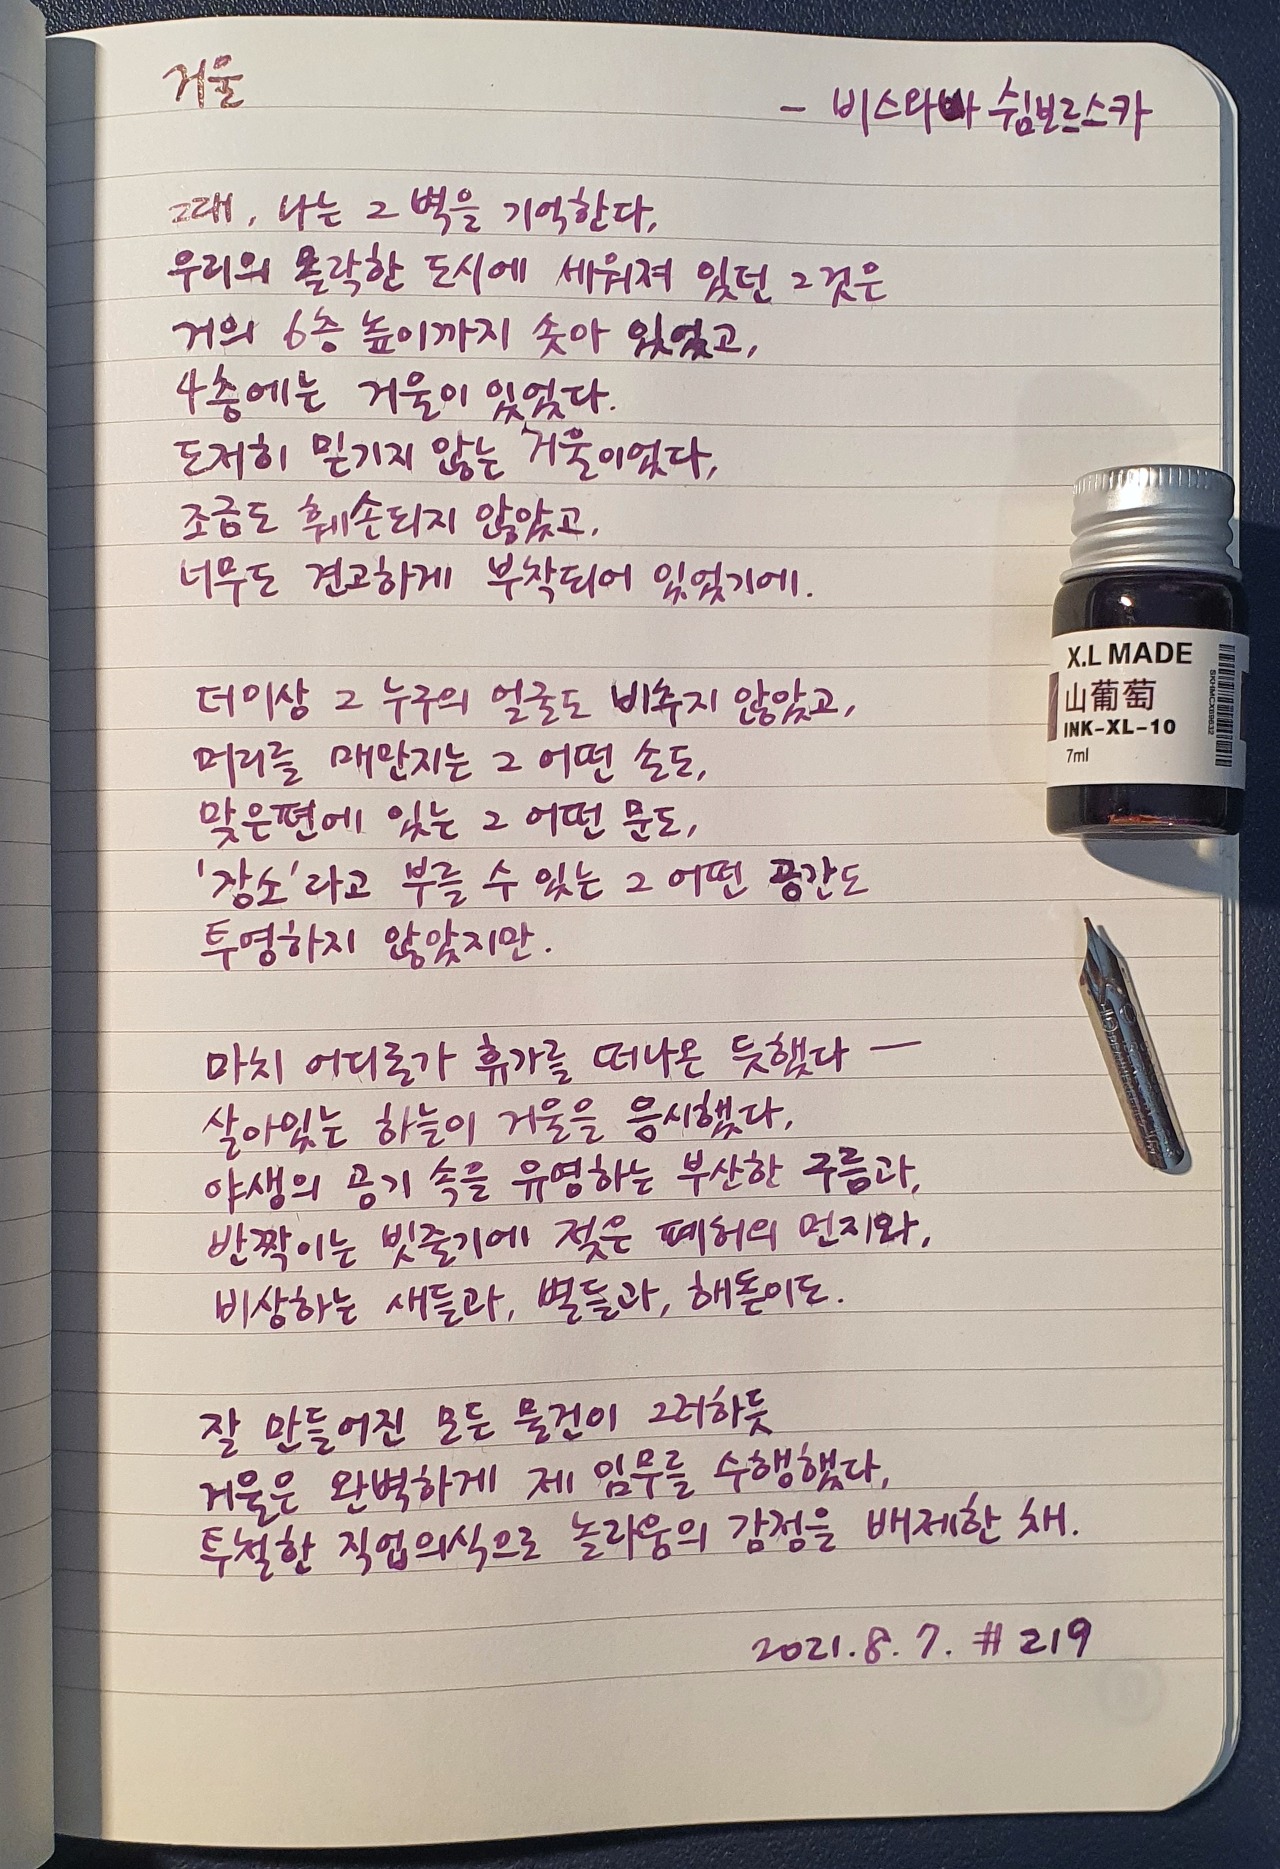 거울
- 비스와바 쉼보르스카
그래, 나는 그 벽을 기억한다,
우리의 몰락한 도시에 세워져 있던 그것은
거의 6층 높이까지 솟아 있었고,
4층에는 거울이 있었다.
도저히 믿기지 않는 거울이었다,
조금도 훼손되지 않았고,
너무도 견고하게 부착되어 있었기에.
더이상 그 누구의 얼굴도 비추지 않았고,
머리를 매만지는 그 어떤 손도,
맞은편에 있는 그 어떤 문도,
'장소'라고 부를 수 있는 그 어떤 공간도
투영하지 않았지만.
마치 어디론가 휴가를 떠나온 듯했다 —
살아있는 하늘이 거울을 응시했다,
야생의 공기 속을 유영하는 부산한 구름과,
반짝이는 빗줄기에 젖은 폐허의 먼지와,
비상하는 새들과, 별들과, 해돋이도.
잘 만들어진 모든 물건이 그러하듯
거울은 완벽하게 제 임무를 수행했다,
투철한 직업의식으로 놀라움의 감정을 배제한 채.
2021.8.7. #219
X.L MADE
山葡萄
INK-XL-10
7ml